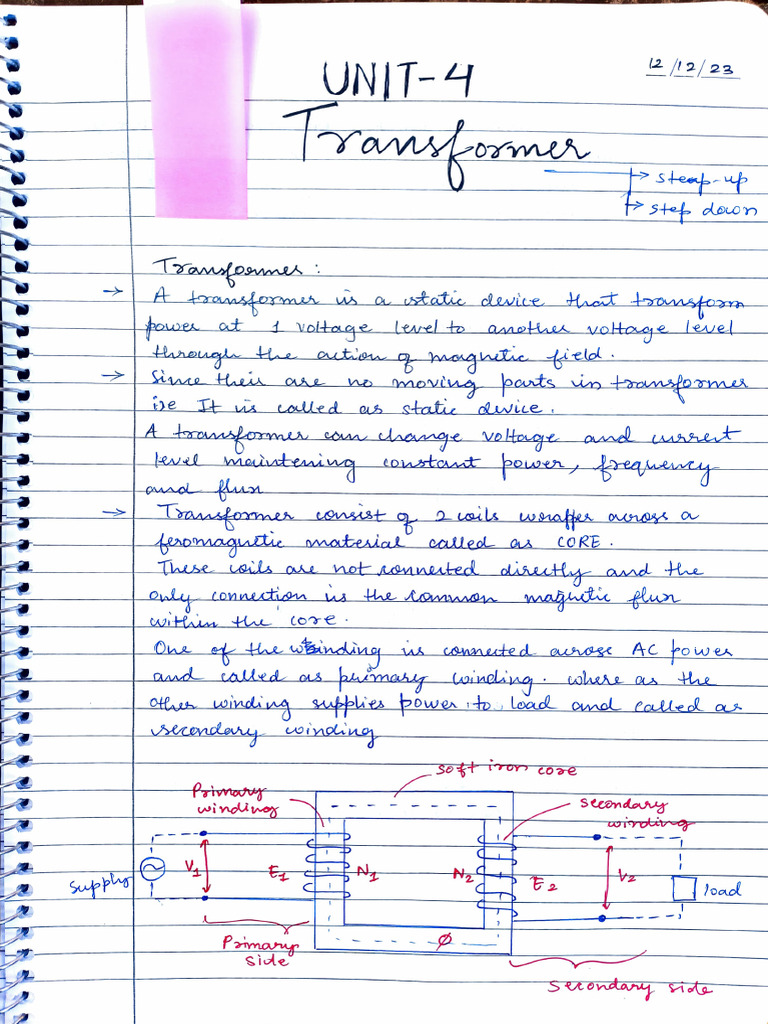 UNIT-4
12/12/23
Transformer
→ steap-up
→ step down
Transformer :
→ A transformer is a static device that transform
power at 1 voltage level to another voltage level
through the action of magnetic field.
→ Since their are no moving parts in transformer
i.e It is called as static device.
A transformer can change voltage and current
level maintening constant power, frequency
and flux
→ Transformer consist of 2 coils wrapper across a
feromagnetic material called as CORE.
These coils are not connected directly and the
only connection is the common magnetic flux
within the core.
One of the winding is connected across AC power
and called as primary winding. where as the
other winding supplies power to load and called as
secondary winding
soft iron core
Primary
winding
secondary
winding
Supply
V1
E1
N1
N2
E2
V2
load
Primary
side
φ
Secondary side